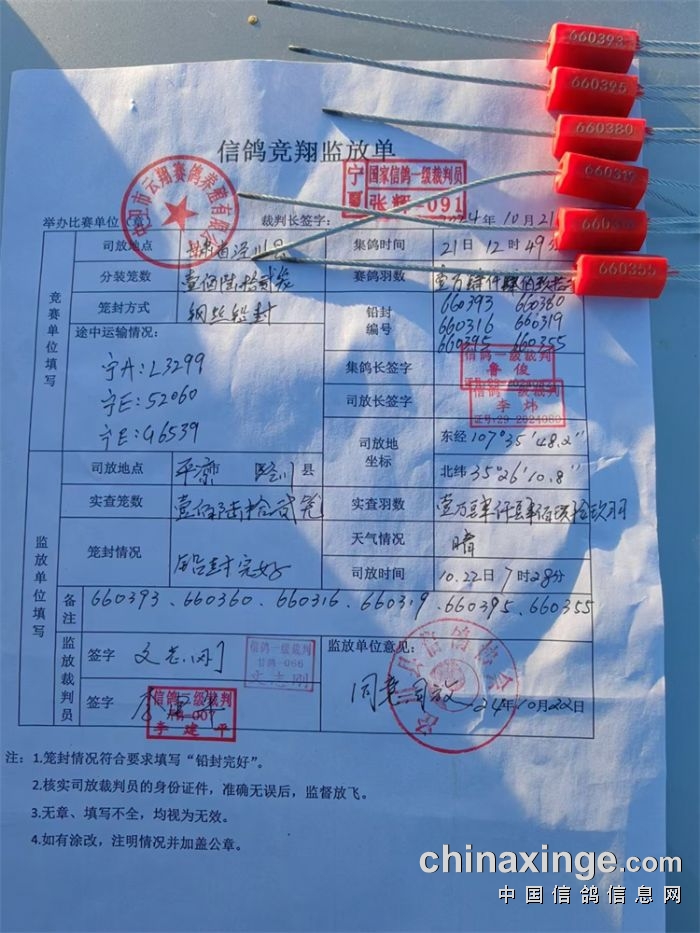 660393
660395
660380
660319
660316
660355
信鸽竞翔监放单
中卫市云翔赛鸽养殖有限公司
宁夏 国家信鸽一级裁判员
张辉-091
举办比赛单位（章） 裁判长签字： 2024年10月21
竞赛单位填写
司放地点 甘肃省泾川县 集鸽时间 21日12时49分
分装笼数 壹佰陆拾贰笼 赛鸽羽数 壹万肆仟肆佰玖拾
笼封方式 钢丝铅封 铅封编号 660393 660380
660316 660319
660395 660355
途中运输情况：
宁A:L3299
宁E:52060
宁E:G6539
集鸽长签字 信鸽一级裁判
鲁俊
司放长签字 信鸽一级裁判
李炜
证号:29-2024080
司放地坐标 东经 107°35′48.2″
北纬 35°26′10.8″
监放单位填写
司放地点 平凉市 泾川县
实查笼数 壹佰陆拾贰笼 实查羽数 壹万肆仟肆佰玖拾玖羽
笼封情况 铅封完好 天气情况 晴
司放时间 10.22日7时28分
备注 660393、660360、660316、660319、660395、660355
监放裁判员
签字 文志刚 信鸽一级裁判
甘鸽-066
文志刚
签字 信鸽一级裁判
李建平
监放单位意见：
同意司放
24年10月22日
信鸽协会
注：1.笼封情况符合要求填写“铅封完好”。
2.核实司放裁判员的身份证件，准确无误后，监督放飞。
3.无章、填写不全，均视为无效。
4.如有涂改，注明情况并加盖公章。
chinaxinge.com
中国信鸽信息网